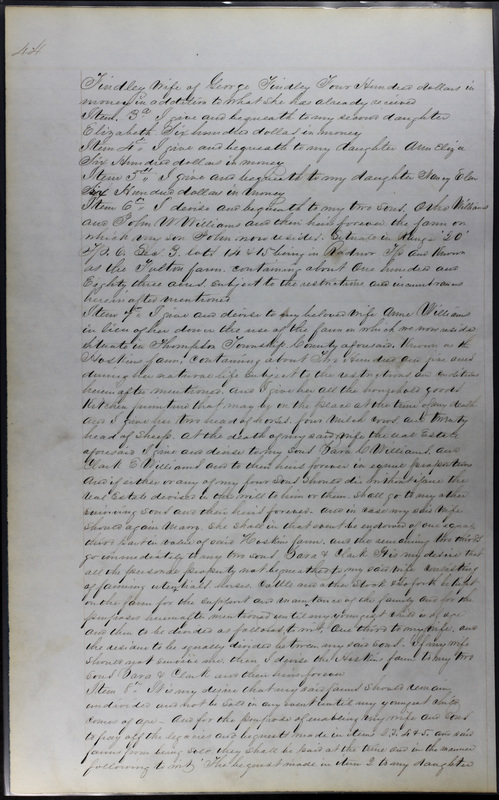 44
Findley Wife of George Findley Four Hundred dollars in
money in addition to what she has already received
Item. 3d I give and bequeath to my second daughter
Elizabeth Six hundred dollars in money
Item 4th I give and bequeath to my daughter Ann Eliza
Six Hundred dollars in money
Item 5th I give and bequeath to my daughter Mary Elen
Six Hundred dollars in Money
Item 6th I devise and bequeath to my two sons, Williams
and John W Williams and their heirs forever the farm on
which my son John now resides. Situate in Range 20
T/P. 6 Sec 3, lots 14 & 15 being in Radnor T/p and known
as the Fulton farm. containing about One hundred and
Eighty three acres. Subject to the restrictions and incumbrances
herein after mentioned
Item 7th I give and devise to my beloved Wife Anne Williams
in lieu of her dower the use of the farm on which we now reside
situate in Thompson Township County aforesaid. Known as the
Hoskins farm. Containing about Hundred and five acres
during her natural life Subject to the restrictions and conditions
herein after mentioned. And I give her all the household goods
Kitchen furniture that may be on the place at the time of my death
and I give her two head of horses. four Milch Cows and twenty
head of Sheep. At the death of my said wife the real Estate
aforesaid I give and devise to my sons C Williams, and
Clark C Williams and to their heirs forever in equal proportions
And if either or any of my four sons should die before the
Real Estate devised in this will to him or them. Shall go to my other
surviving Sons and their heirs forever. And in case my said Wife
should again Marry. She shall in that event be endowed of one equal
third part in value of said Hoskins farm, and the remaining two thirds
go immediately to my two sons & Clark It is my desire that
all the personal property not bequeathed to my said wife consisting
of farming utensials horses. Cattle and other Stock be left
on the farm for the support and maintenance of the family and for the
purposes herein after mentioned until my youngest child is of age
and then to be divided as follows, to wit, One third to my wife, and
the residue to be equally divided between my said sons. If my wife
should not survive me, then I devise the Hoskins farm to my two
sons & Clark and their heirs forever
Item 8th It is my desire that my said farms should remain
undivided and not be sold in any event until my youngest child
comes of age - And for the purpose of enabling my wife and sons
to pay off the legacies and bequests made in items 2. 3. 4 & 5. and said
farms from being sold, they shall be paid at the time and in the manner
following to wit; The bequest made in item 2 to my daughter